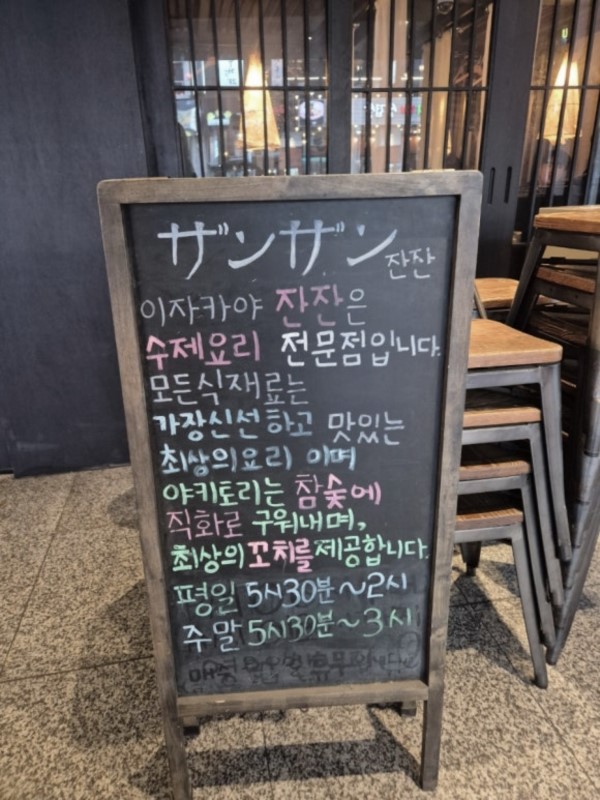 ザンザン 잔잔
이자카야 잔잔은
수제요리 전문점입니다.
모든식재료는
가장신선하고 맛있는
최상의요리 이며
야키토리는 참숯에
직화로 구워내며,
최상의꼬치를제공합니다.
평일 5시30분~2시
주말 5시30분~3시